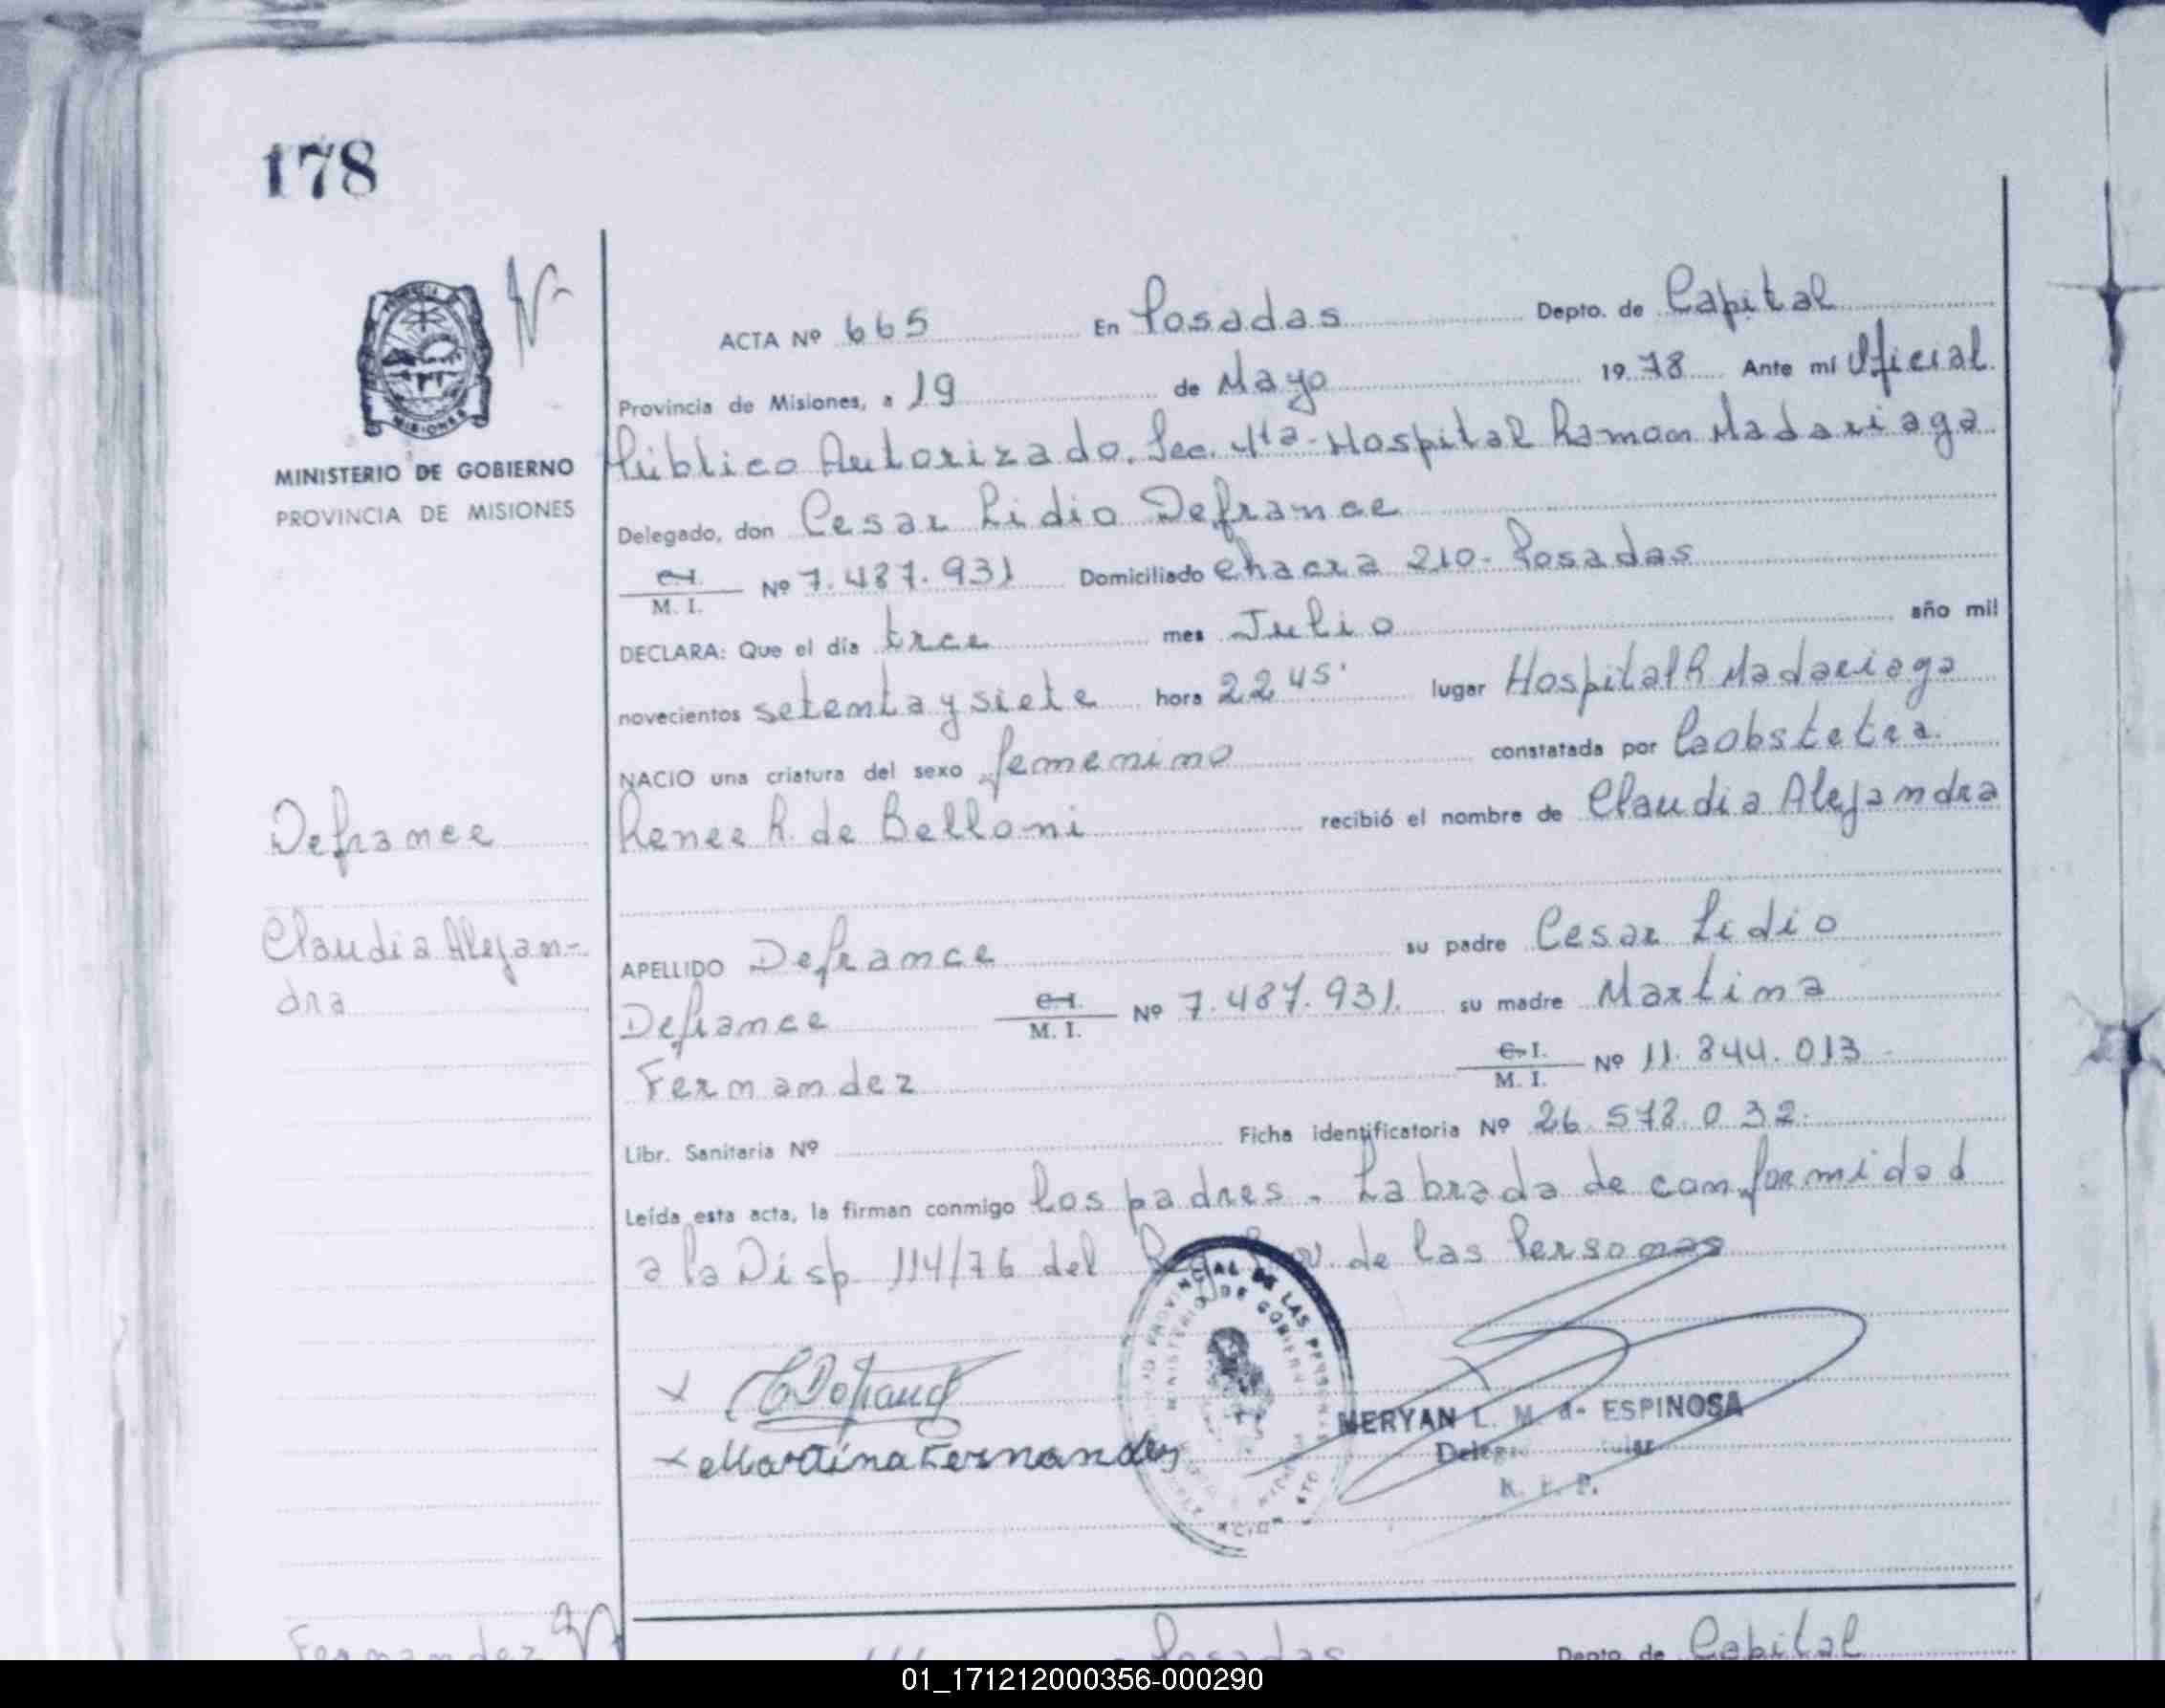 178
ACTA Nº 665 En Posadas Depto. de Capital
Provincia de Misiones, a 19 de Mayo 1978 Ante mí Oficial
Público Autorizado. Sec. 4ta- Hospital Ramon Madariaga
MINISTERIO DE GOBIERNO
PROVINCIA DE MISIONES
Delegado, don Cesar Lidio Defrance
C.I. M. I. Nº 7.487.931 Domiciliado chacra 210- Posadas
DECLARA: Que el día trce mes Julio año mil
novecientos setenta y siete hora 22 45' lugar Hospital R Madariaga
NACIO una criatura del sexo femenino constatada por la obstetra.
Defrance
Renee R. de Belloni recibió el nombre de Claudia Alejandra
Claudia Alejan-
dra
APELLIDO Defrance su padre Cesar Lidio
Defrance C.I. M. I. Nº 7.487.931. su madre Martina
Fernandez C.I. M. I. Nº 11.844.013-
Libr. Sanitaria Nº Ficha identificatoria Nº 26.578.032.
Leída esta acta, la firman conmigo los padres. Labrada de conformidad
a la Disp. 114/76 del de las Personas
Martina Fernandez
MERYAN L. M. de ESPINOSA
R. P. P.
Fernandez
Posadas Depto. de Capital
01_171212000356-000290